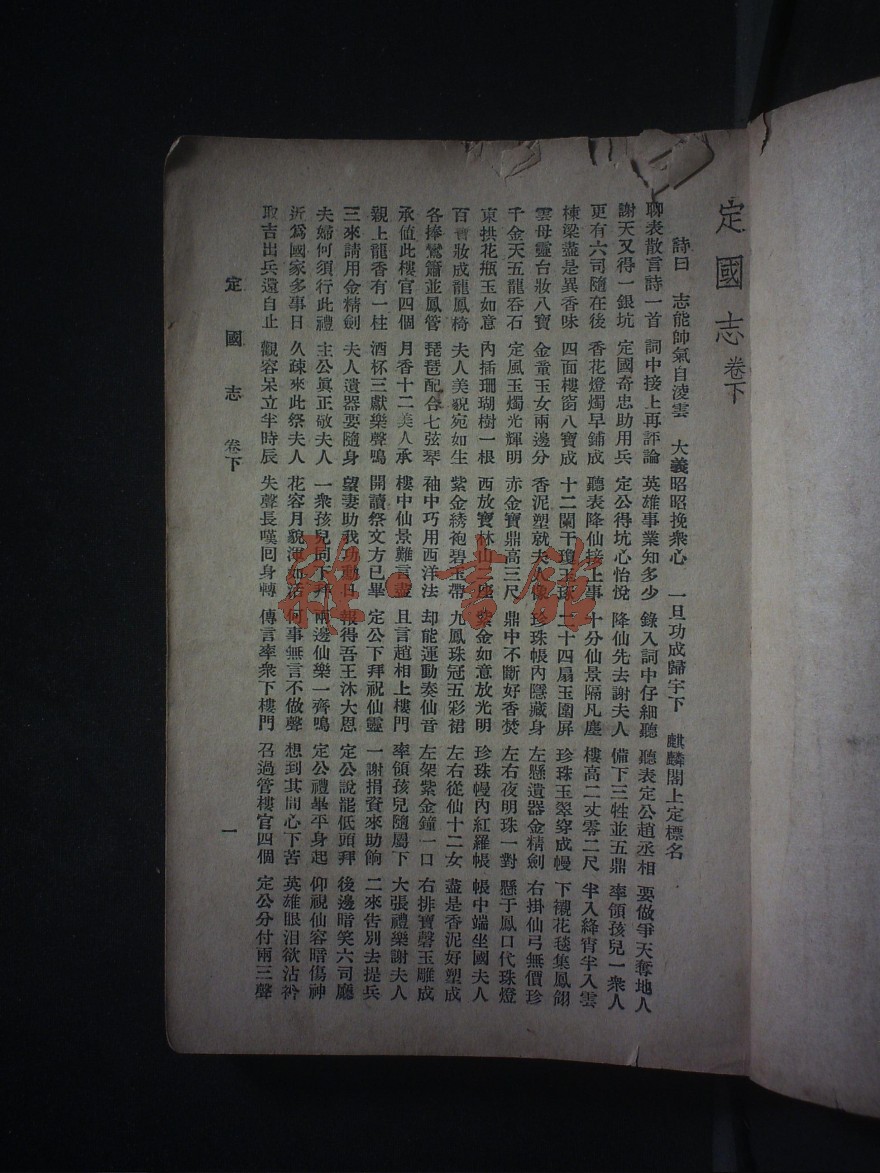 定國志 卷下
詩曰 志能帥氣自淩雲 大義昭昭挽衆心 一旦功成歸宇下 麒麟閣上定標名
聊表散言詩一首 詞中接上再評論 英雄事業知多少 錄入詞中仔細聽 聽表定公趙丞相 要做爭天奪地人
謝天又得一銀坑 定國奇忠助用兵 定公得坑心怡悅 降仙先去謝夫人 備下三牲並五鼎 率領孩兒一衆人
更有六司隨在後 香花燈燭早鋪成 聽表降仙接上事 十分仙景隔凡塵 樓高二丈零二尺 半入絳霄半入雲
棟梁盡是異香味 四面樓窗八寶成 十二闌干瓊玉琢 二十四扇玉圍屏 珍珠玉翠穿成幔 下襯花毯集鳳翎
雲母靈台妝八寶 金童玉女兩邊分 香泥塑就夫人像 珍珠帳內隱藏身 左懸遺器金精劍 右掛仙弓無價珍
千金天五龍吞石 定風玉燭光輝明 赤金寶鼎高三尺 鼎中不斷好香焚 左右夜明珠一對 懸于鳳口代珠燈
東拱花瓶玉如意 內插珊瑚樹一根 西放寶林山一座 紫金如意放光明 珍珠幔內紅羅帳 帳中端坐國夫人
百寶妝成龍鳳椅 夫人美貌宛如生 紫金綉袍碧玉帶 九鳳珠冠五彩裙 左右從仙十二女 盡是香泥好塑成
各捧鸞簫並鳳管 琵琶配合七弦琴 袖中巧用西洋法 却能運動奏仙音 左架紫金鐘一口 右排寶磬玉雕成
承値此樓官四個 月香十二美人承 樓中仙景難言盡 且言趙相上樓門 率領孩兒隨屬下 大張禮樂謝夫人
親上龍香有一柱 酒杯三獻樂聲鳴 開讀祭文方已畢 定公下拜祝仙靈 一謝捐資來助餉 二來告別去提兵
三來請用金精劍 夫人遺器要隨身 望妻助我功動日 報得吾王沐大恩 定公說罷低頭拜 後邊暗笑六司廳
夫婦何須行此禮 主公眞正敬夫人 一衆孩兒同下拜 兩邊仙樂一齊鳴 定公禮畢平身起 仰視仙容暗傷神
近爲國家多事日 久疎來此祭夫人 花容月貌渾如活 何事無言不做聲 想到其間心下苦 英雄眼泪欲沾衿
取吉出兵還自止 觀容呆立半時辰 失聲長嘆囘身轉 傳言率衆下樓門 召過管樓官四個 定公分付兩三聲
定國志 卷下 一
雜·書館